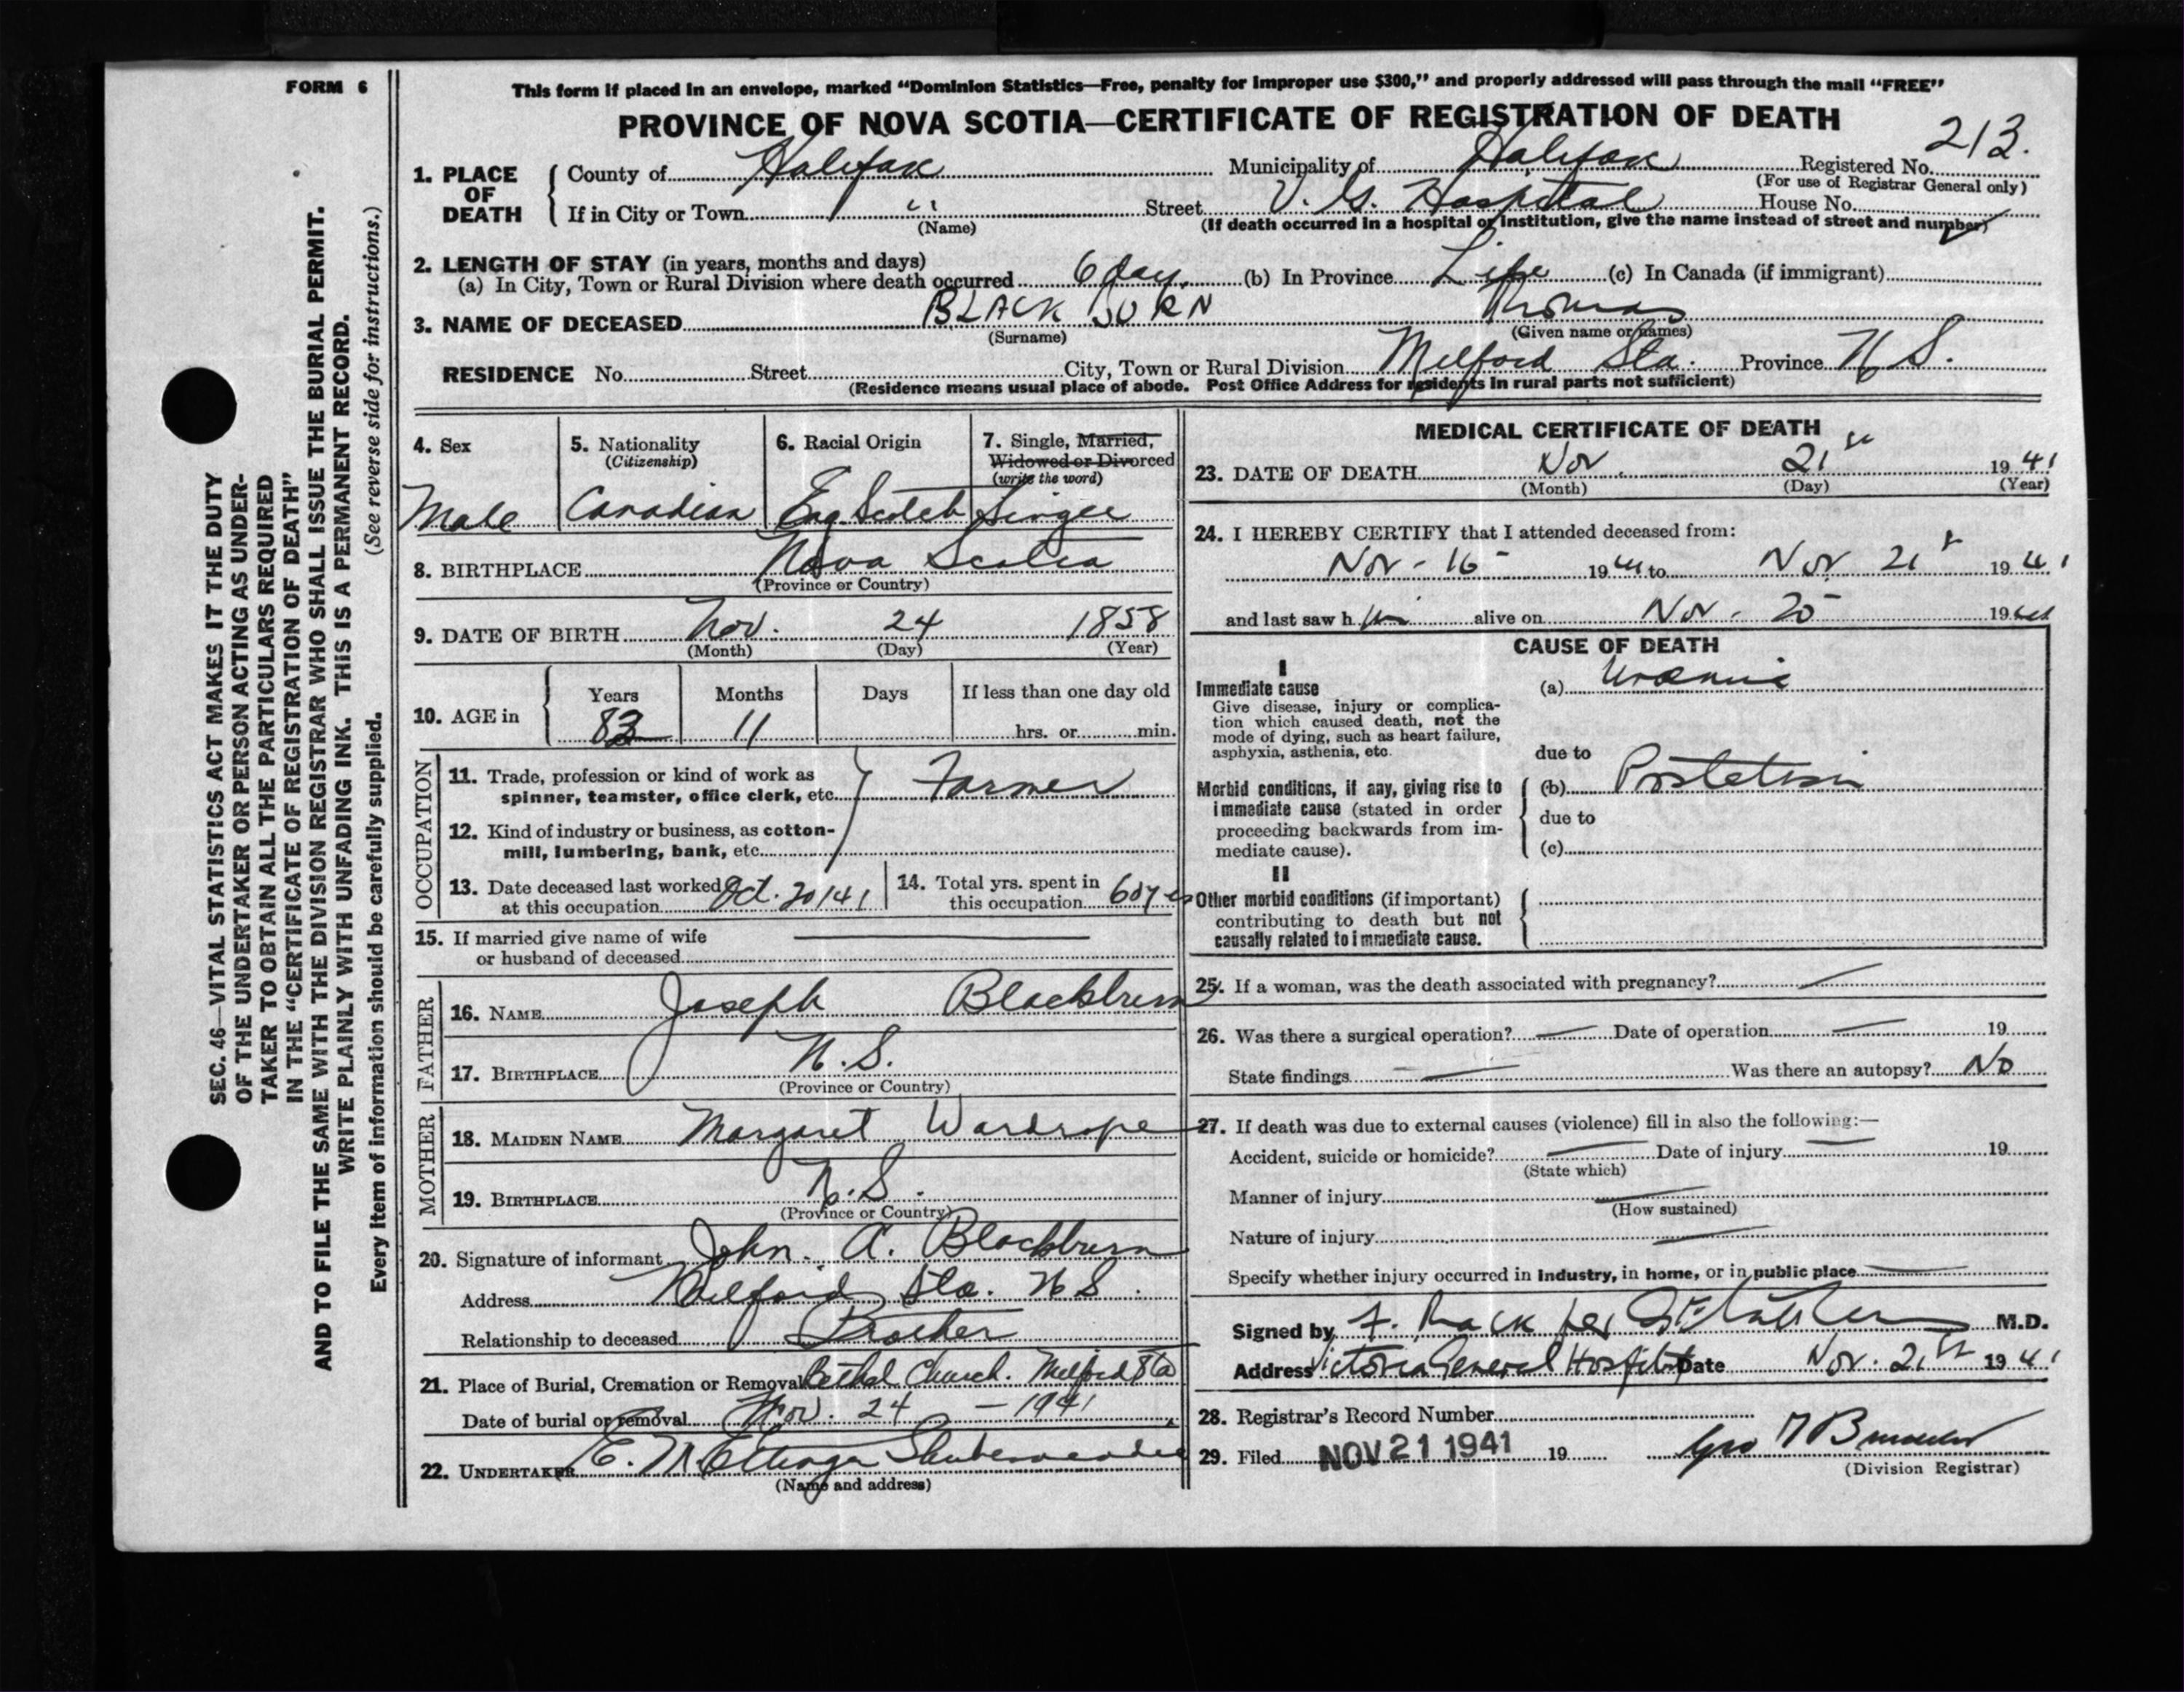 FORM 6
This form if placed in an envelope, marked "Dominion Statistics—Free, penalty for improper use $300," and properly addressed will pass through the mail "FREE"
PROVINCE OF NOVA SCOTIA—CERTIFICATE OF REGISTRATION OF DEATH
SEC. 46—VITAL STATISTICS ACT MAKES IT THE DUTY
OF THE UNDERTAKER OR PERSON ACTING AS UNDER-
TAKER TO OBTAIN ALL THE PARTICULARS REQUIRED
IN THE "CERTIFICATE OF REGISTRATION OF DEATH"
AND TO FILE THE SAME WITH THE DIVISION REGISTRAR WHO SHALL ISSUE THE BURIAL PERMIT.
WRITE PLAINLY WITH UNFADING INK. THIS IS A PERMANENT RECORD.
Every item of information should be carefully supplied. (See reverse side for instructions.)
1. PLACE OF DEATH
County of Halifax Municipality of Halifax Registered No. 213.
(For use of Registrar General only)
If in City or Town " Street V. G. Hospital House No.
(Name) (If death occurred in a hospital or institution, give the name instead of street and number)
2. LENGTH OF STAY (in years, months and days)
(a) In City, Town or Rural Division where death occurred 6 day. (b) In Province Life (c) In Canada (if immigrant)
3. NAME OF DECEASED BLACKBURN Thomas
(Surname) (Given name or names)
RESIDENCE No. Street City, Town or Rural Division Milford Sta. Province N S.
(Residence means usual place of abode. Post Office Address for residents in rural parts not sufficient)
4. Sex 5. Nationality 6. Racial Origin 7. Single, Married,
(Citizenship) Widowed or Divorced
(write the word)
Male Canadian Eng. Scotch Single
8. BIRTHPLACE Nova Scotia
(Province or Country)
9. DATE OF BIRTH Nov. 24 1858
(Month) (Day) (Year)
10. AGE in Years Months Days If less than one day old
83 11 hrs. or min.
OCCUPATION
11. Trade, profession or kind of work as
spinner, teamster, office clerk, etc. Farmer
12. Kind of industry or business, as cotton-
mill, lumbering, bank, etc.
13. Date deceased last worked
at this occupation Oct. 20/41
14. Total yrs. spent in
this occupation 60 yrs
15. If married give name of wife
or husband of deceased
FATHER
16. NAME Joseph Blackburn
17. BIRTHPLACE N.S.
(Province or Country)
MOTHER
18. MAIDEN NAME Margaret Wardrope
19. BIRTHPLACE N.S.
(Province or Country)
20. Signature of informant John. A. Blackburn
Address Milford Sta. N S.
Relationship to deceased Brother
21. Place of Burial, Cremation or Removal Bethel Church. Milford Sta
Date of burial or removal Nov. 24 - 1941
22. UNDERTAKER E. M. Ettinger Shubenacadie
(Name and address)
MEDICAL CERTIFICATE OF DEATH
23. DATE OF DEATH Nov. 21st 1941
(Month) (Day) (Year)
24. I HEREBY CERTIFY that I attended deceased from:
Nov - 16 1941 to Nov 21st 1941
and last saw him alive on Nov - 20 1941
CAUSE OF DEATH
I
Immediate cause (a) Uraemia
Give disease, injury or complica-
tion which caused death, not the
mode of dying, such as heart failure,
asphyxia, asthenia, etc.
due to
Morbid conditions, if any, giving rise to
immediate cause (stated in order
proceeding backwards from im-
mediate cause).
(b)
due to
(c)
II
Other morbid conditions (if important)
contributing to death but not
causally related to immediate cause.
25. If a woman, was the death associated with pregnancy?
26. Was there a surgical operation? Date of operation 19
State findings Was there an autopsy? No
27. If death was due to external causes (violence) fill in also the following:—
Accident, suicide or homicide? Date of injury 19
(State which)
Manner of injury
(How sustained)
Nature of injury
Specify whether injury occurred in industry, in home, or in public place
Signed by F. Mack per M.D.
Address Victoria General Hospital Date Nov. 21st 1941
28. Registrar's Record Number
29. Filed NOV 21 1941 19
(Division Registrar)